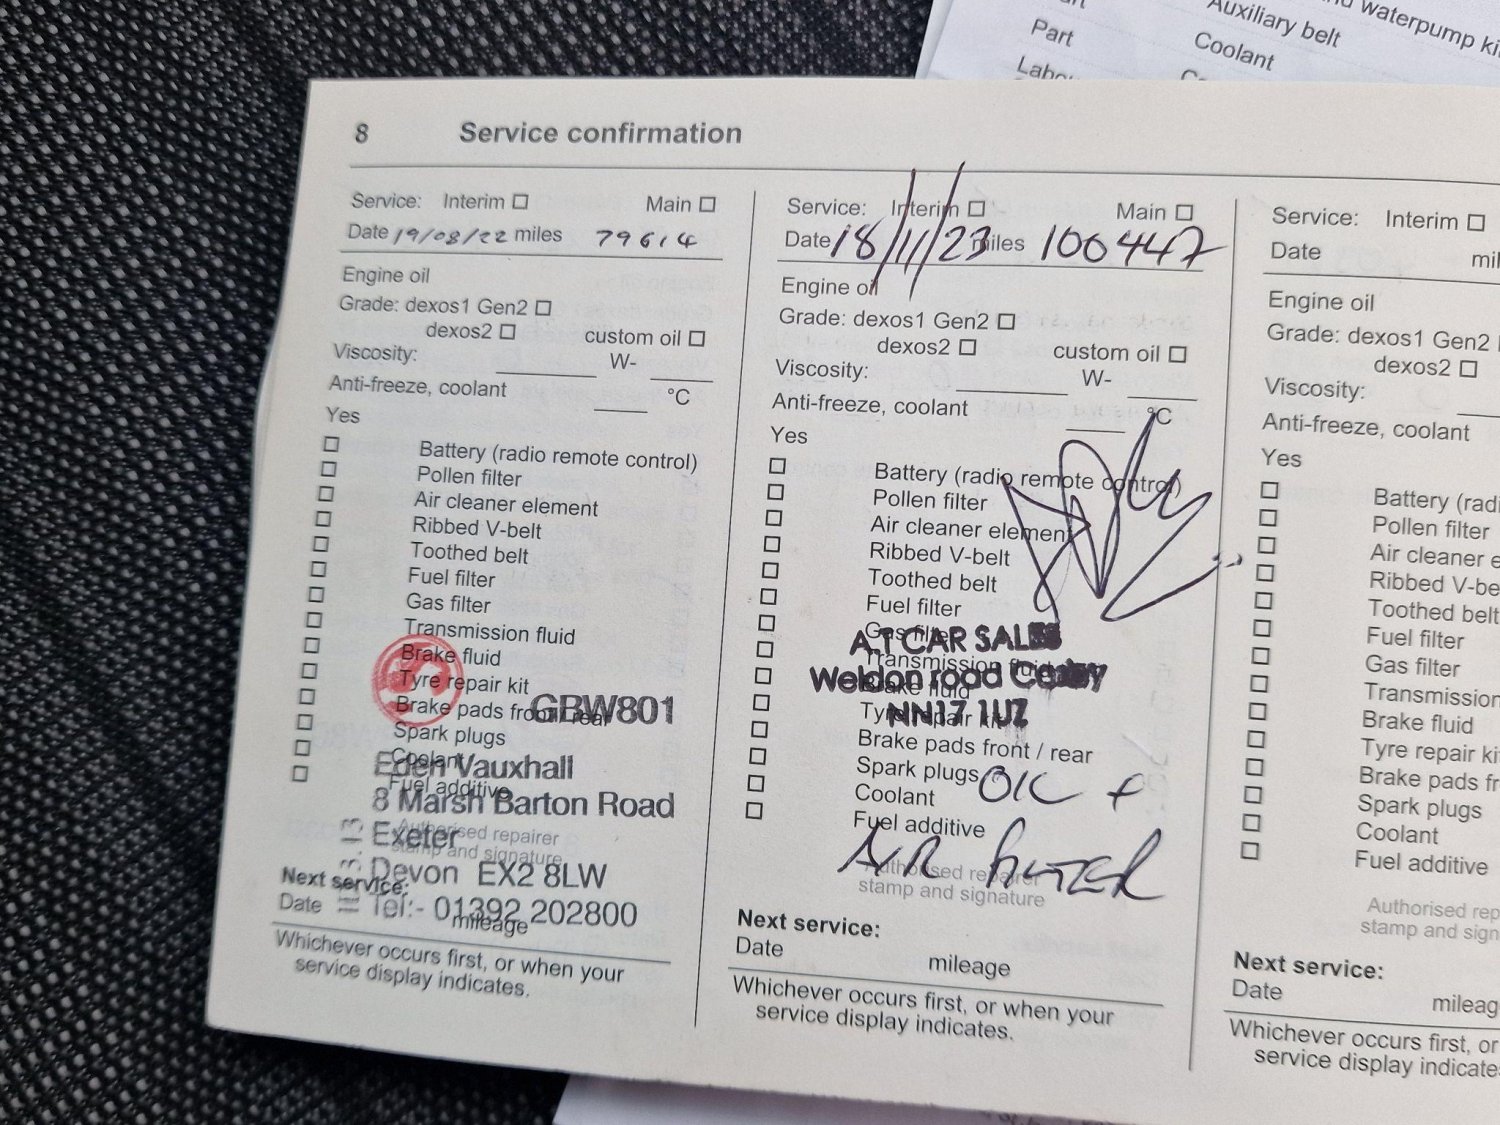 Auxiliary belt
waterpump
Part
Coolant
8 Service confirmation
Service: Interim □ Main □
Date 19/08/22 miles 79614
Engine oil
Grade: dexos1 Gen2 □
dexos2 □ custom oil □
Viscosity: W-
Anti-freeze, coolant °C
Yes
□ Battery (radio remote control)
□ Pollen filter
□ Air cleaner element
□ Ribbed V-belt
□ Toothed belt
□ Fuel filter
□ Gas filter
□ Transmission fluid
□ Brake fluid
□ Tyre repair kit
□ Brake pads front / rear
GBW801
□ Spark plugs
□ Coolant
□ Fuel additive
Eden Vauxhall
8 Marsh Barton Road
Exeter
Devon EX2 8LW
Tel:- 01392 202800
Authorised repairer
stamp and signature
Next service:
Date mileage
Whichever occurs first, or when your
service display indicates.
Service: Interim □ Main □
Date 18/11/23 miles 100447
Engine oil
Grade: dexos1 Gen2 □
dexos2 □ custom oil □
Viscosity: W-
Anti-freeze, coolant °C
Yes
□ Battery (radio remote control)
□ Pollen filter
□ Air cleaner element
□ Ribbed V-belt
□ Toothed belt
□ Fuel filter
□ Gas filter
□ Transmission fluid
□ Brake fluid
□ Tyre repair kit
□ Brake pads front / rear
□ Spark plugs
□ Coolant
□ Fuel additive
A 1 CAR SALES
Weldon road Corby
NN17 1UZ
OIL +
AIR FILTER
Authorised repairer
stamp and signature
Next service:
Date mileage
Whichever occurs first, or when your
service display indicates.
Service: Interim □
Date
Engine oil
Grade: dexos1 Gen2
dexos2 □
Viscosity:
Anti-freeze, coolant
Yes
□ Battery (radi
□ Pollen filter
□ Air cleaner e
□ Ribbed V-be
□ Toothed belt
□ Fuel filter
□ Gas filter
□ Transmission
□ Brake fluid
□ Tyre repair ki
□ Brake pads fr
□ Spark plugs
□ Coolant
□ Fuel additive
Authorised rep
stamp and sign
Next service:
Date mileag
Whichever occurs first, or
service display indicate